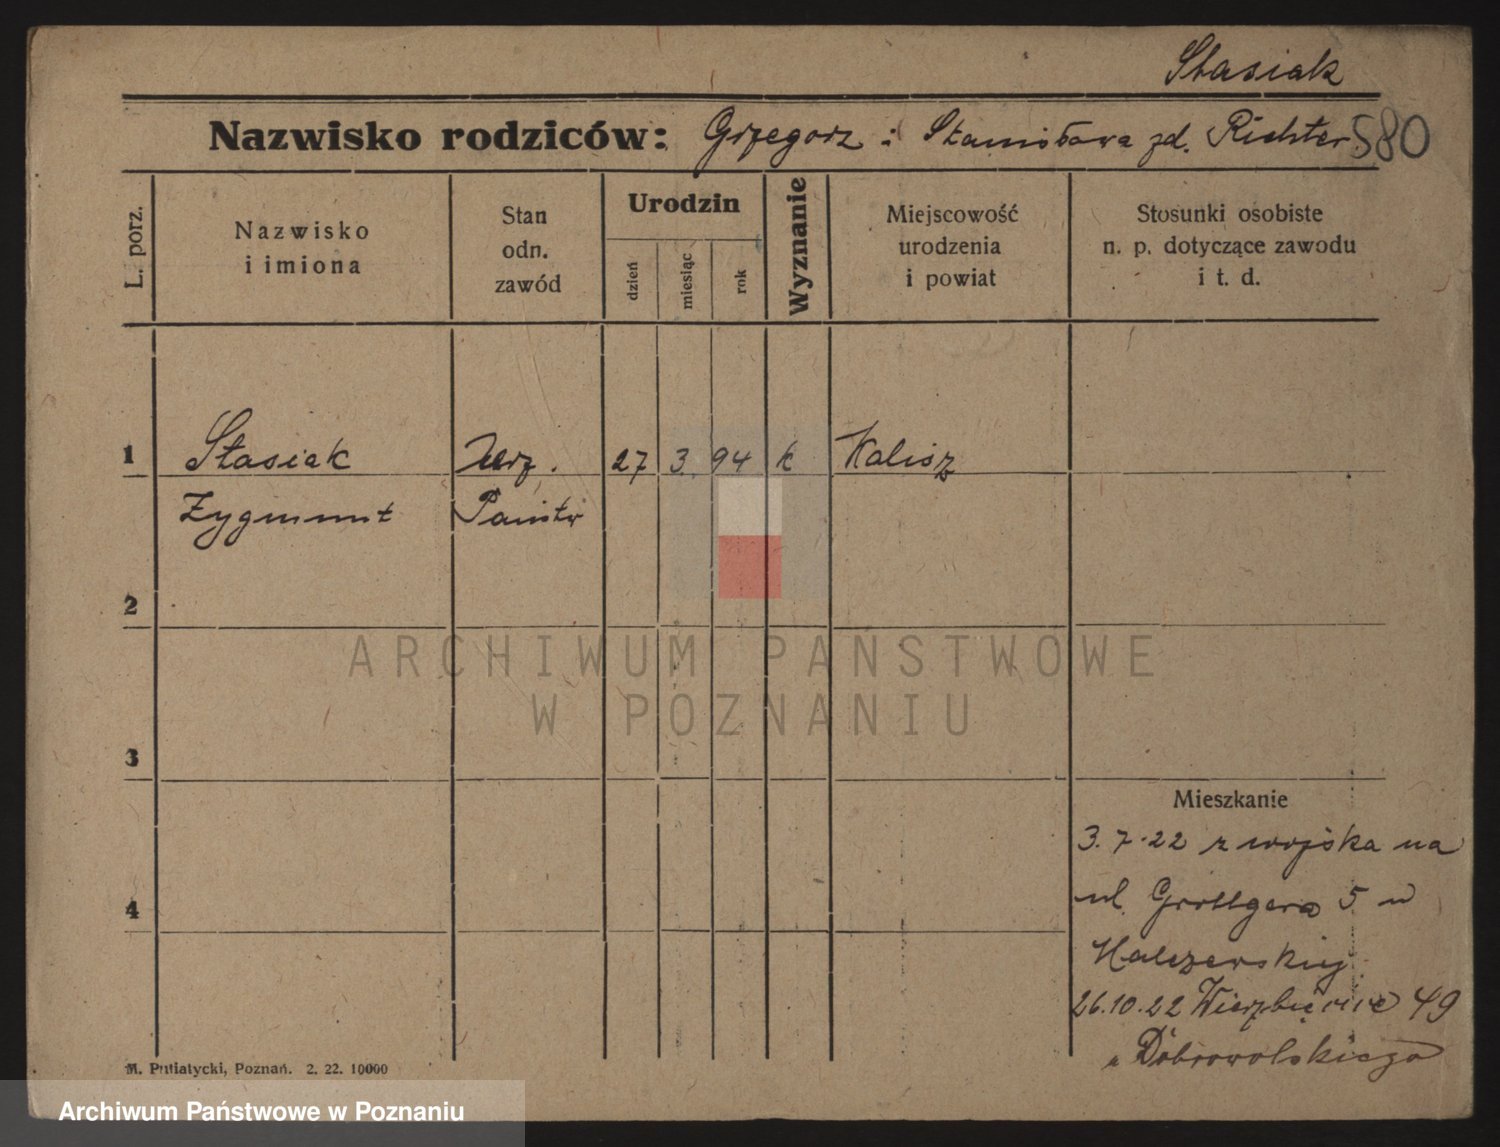 Stasiak
Nazwisko rodziców: Grzegorz i Stanisława zd. Richter 580
L. porz.
Nazwisko
i imiona
Stan
odn.
zawód
Urodzin
dzień
miesiąc
rok
Wyznanie
Miejscowość
urodzenia
i powiat
Stosunki osobiste
n. p. dotyczące zawodu
i t. d.
1 Stasiak 27 3. 94 k Kalisz
Zygmunt
2
ARCHIWUM PAŃSTWOWE
W POZNANIU
3
Mieszkanie
3. 7. 22 z wojska na
4
ul. Grottgera 5 u
26.10.22 Wierzbięcice 49
u Dobrowolskiego
M. Putiatycki, Poznań. 2. 22. 10000
Archiwum Państwowe w Poznaniu